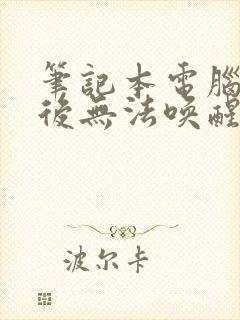 筆記本電腦
後無法喚醒
波尔卡